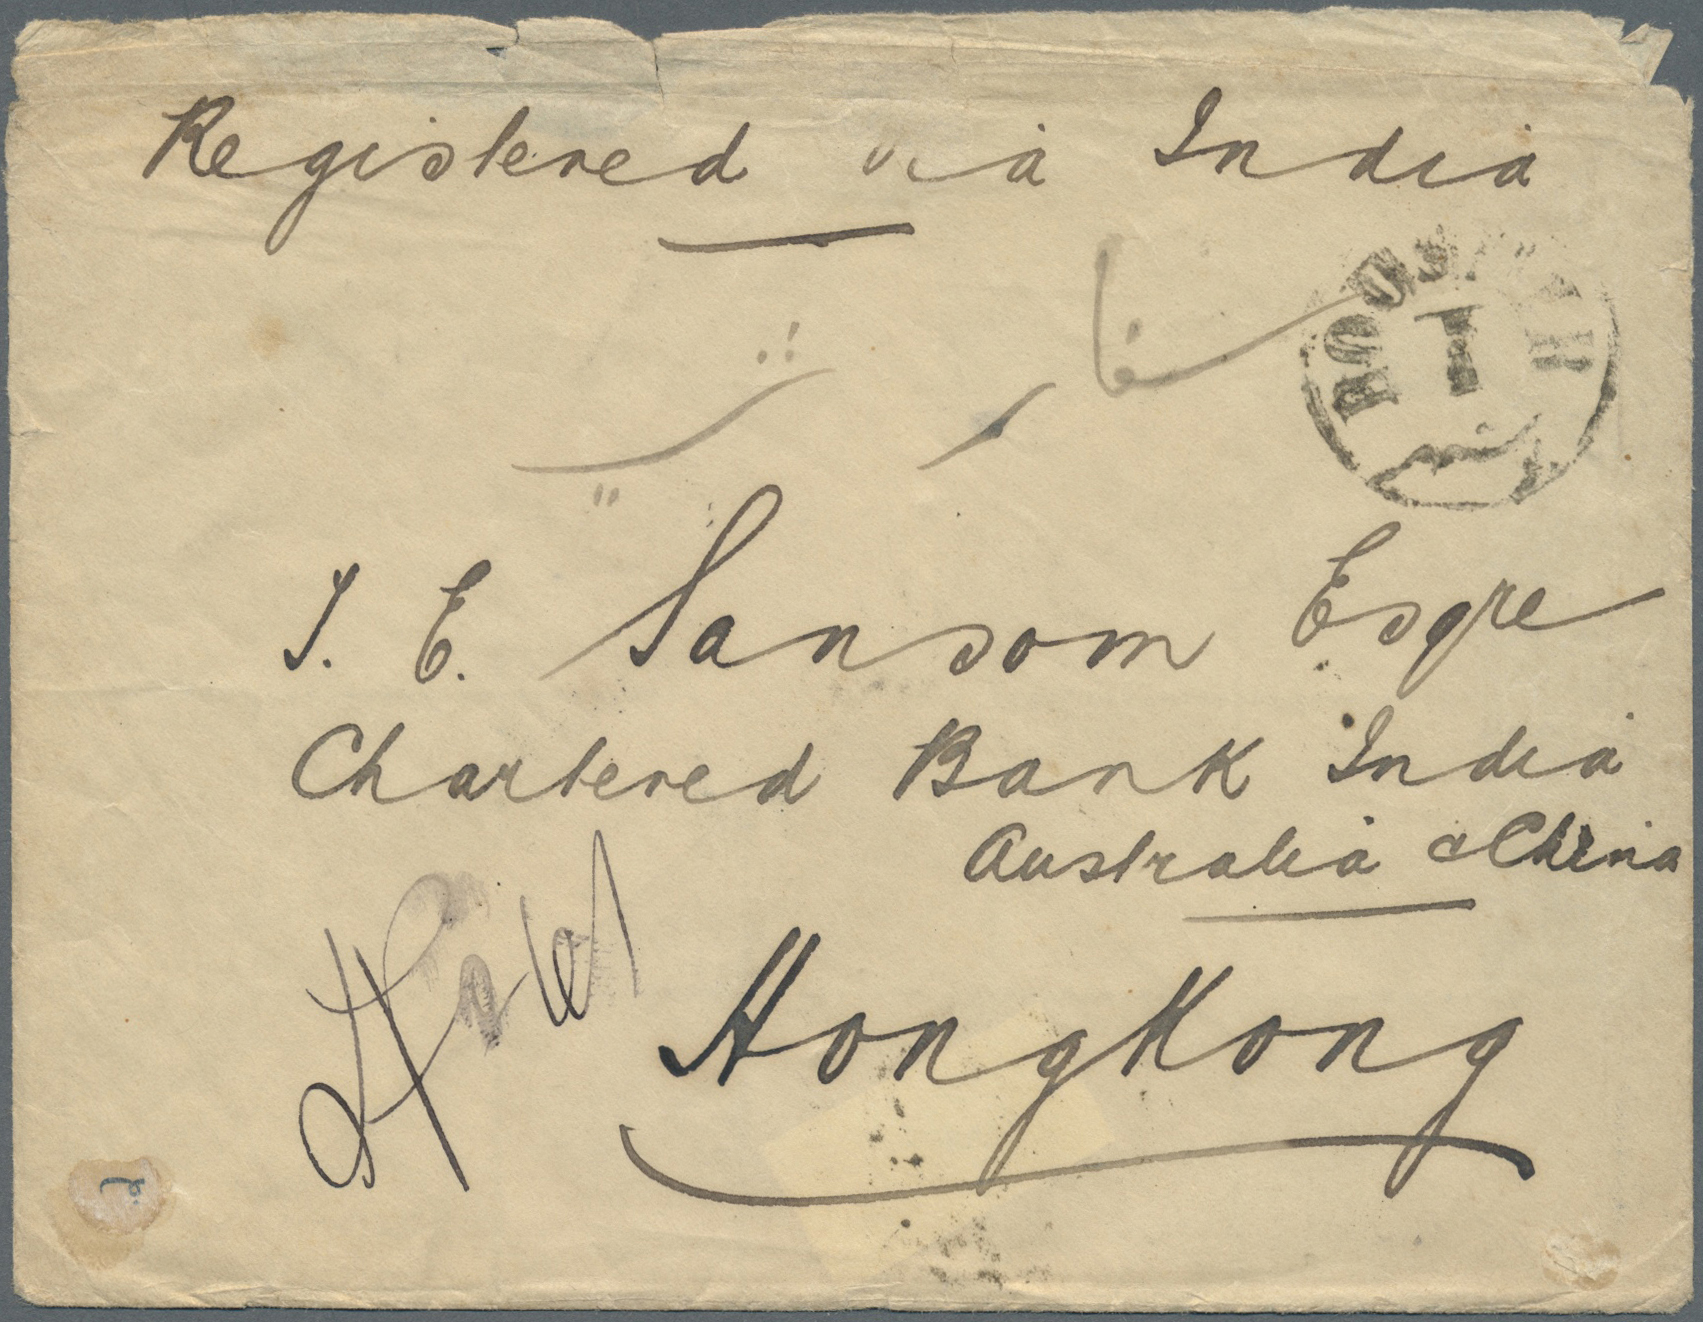 Registered via India
سفارشی
J. E. Sansom Esqre
Chartered Bank India
Australia & China
HongKong